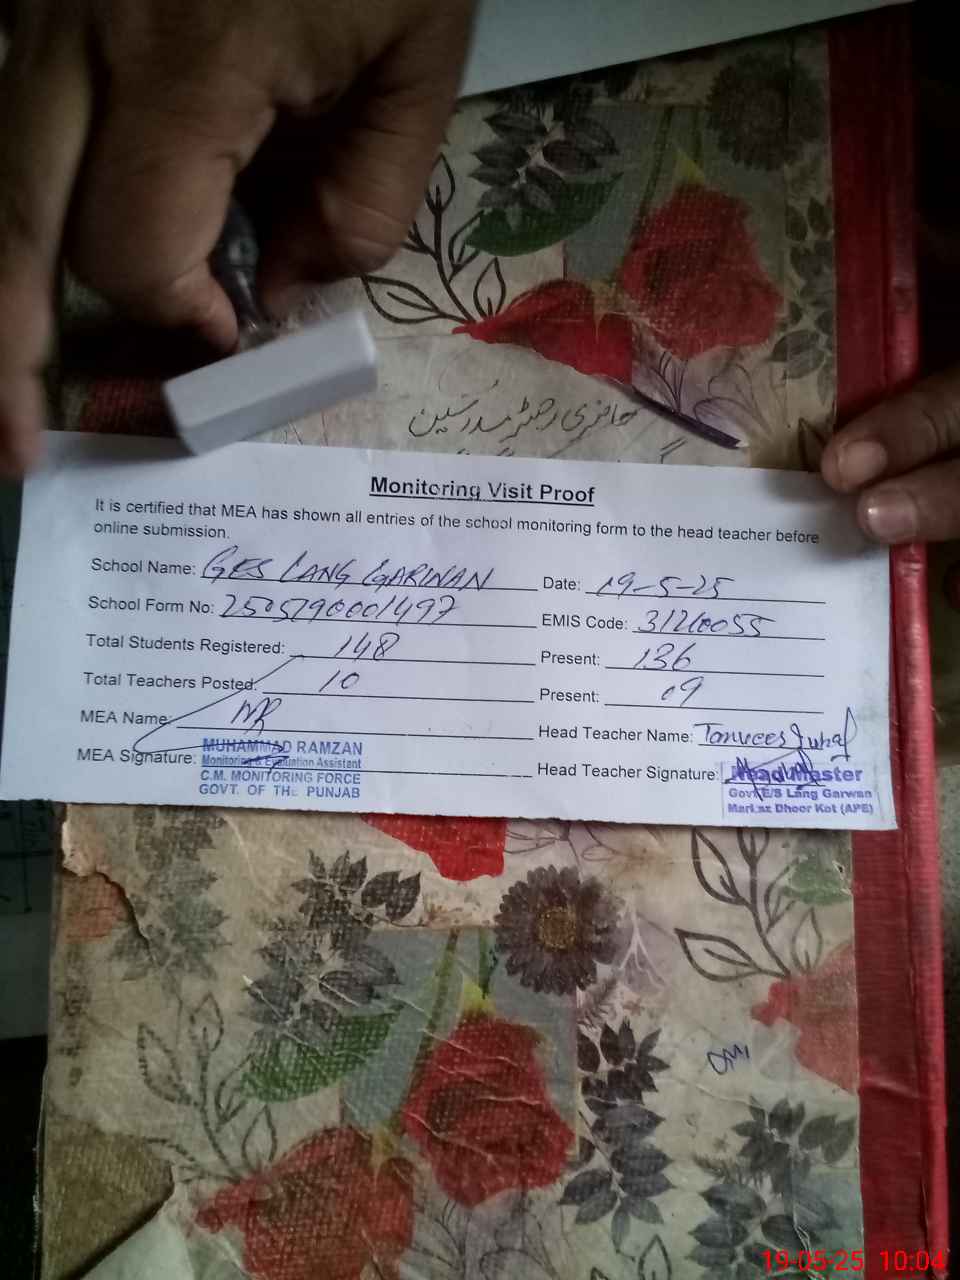 حاضری رجسٹر مدرسین
Monitoring Visit Proof
It is certified that MEA has shown all entries of the school monitoring form to the head teacher before
online submission.
School Name: GES LANG GARWAN Date: 19-5-25
School Form No: 2505190001497 EMIS Code: 31240055
Total Students Registered: 148 Present: 136
Total Teachers Posted: 10 Present: 09
MEA Name: MR Head Teacher Name:
MEA Signature: Head Teacher Signature:
MUHAMMAD RAMZAN
Monitoring & Evaluation Assistant
C.M. MONITORING FORCE
GOVT. OF THE PUNJAB
Head Master
Govt E/S Lang Garwan
Markaz Dhoor Kot (APE)
19-05-25 10:04